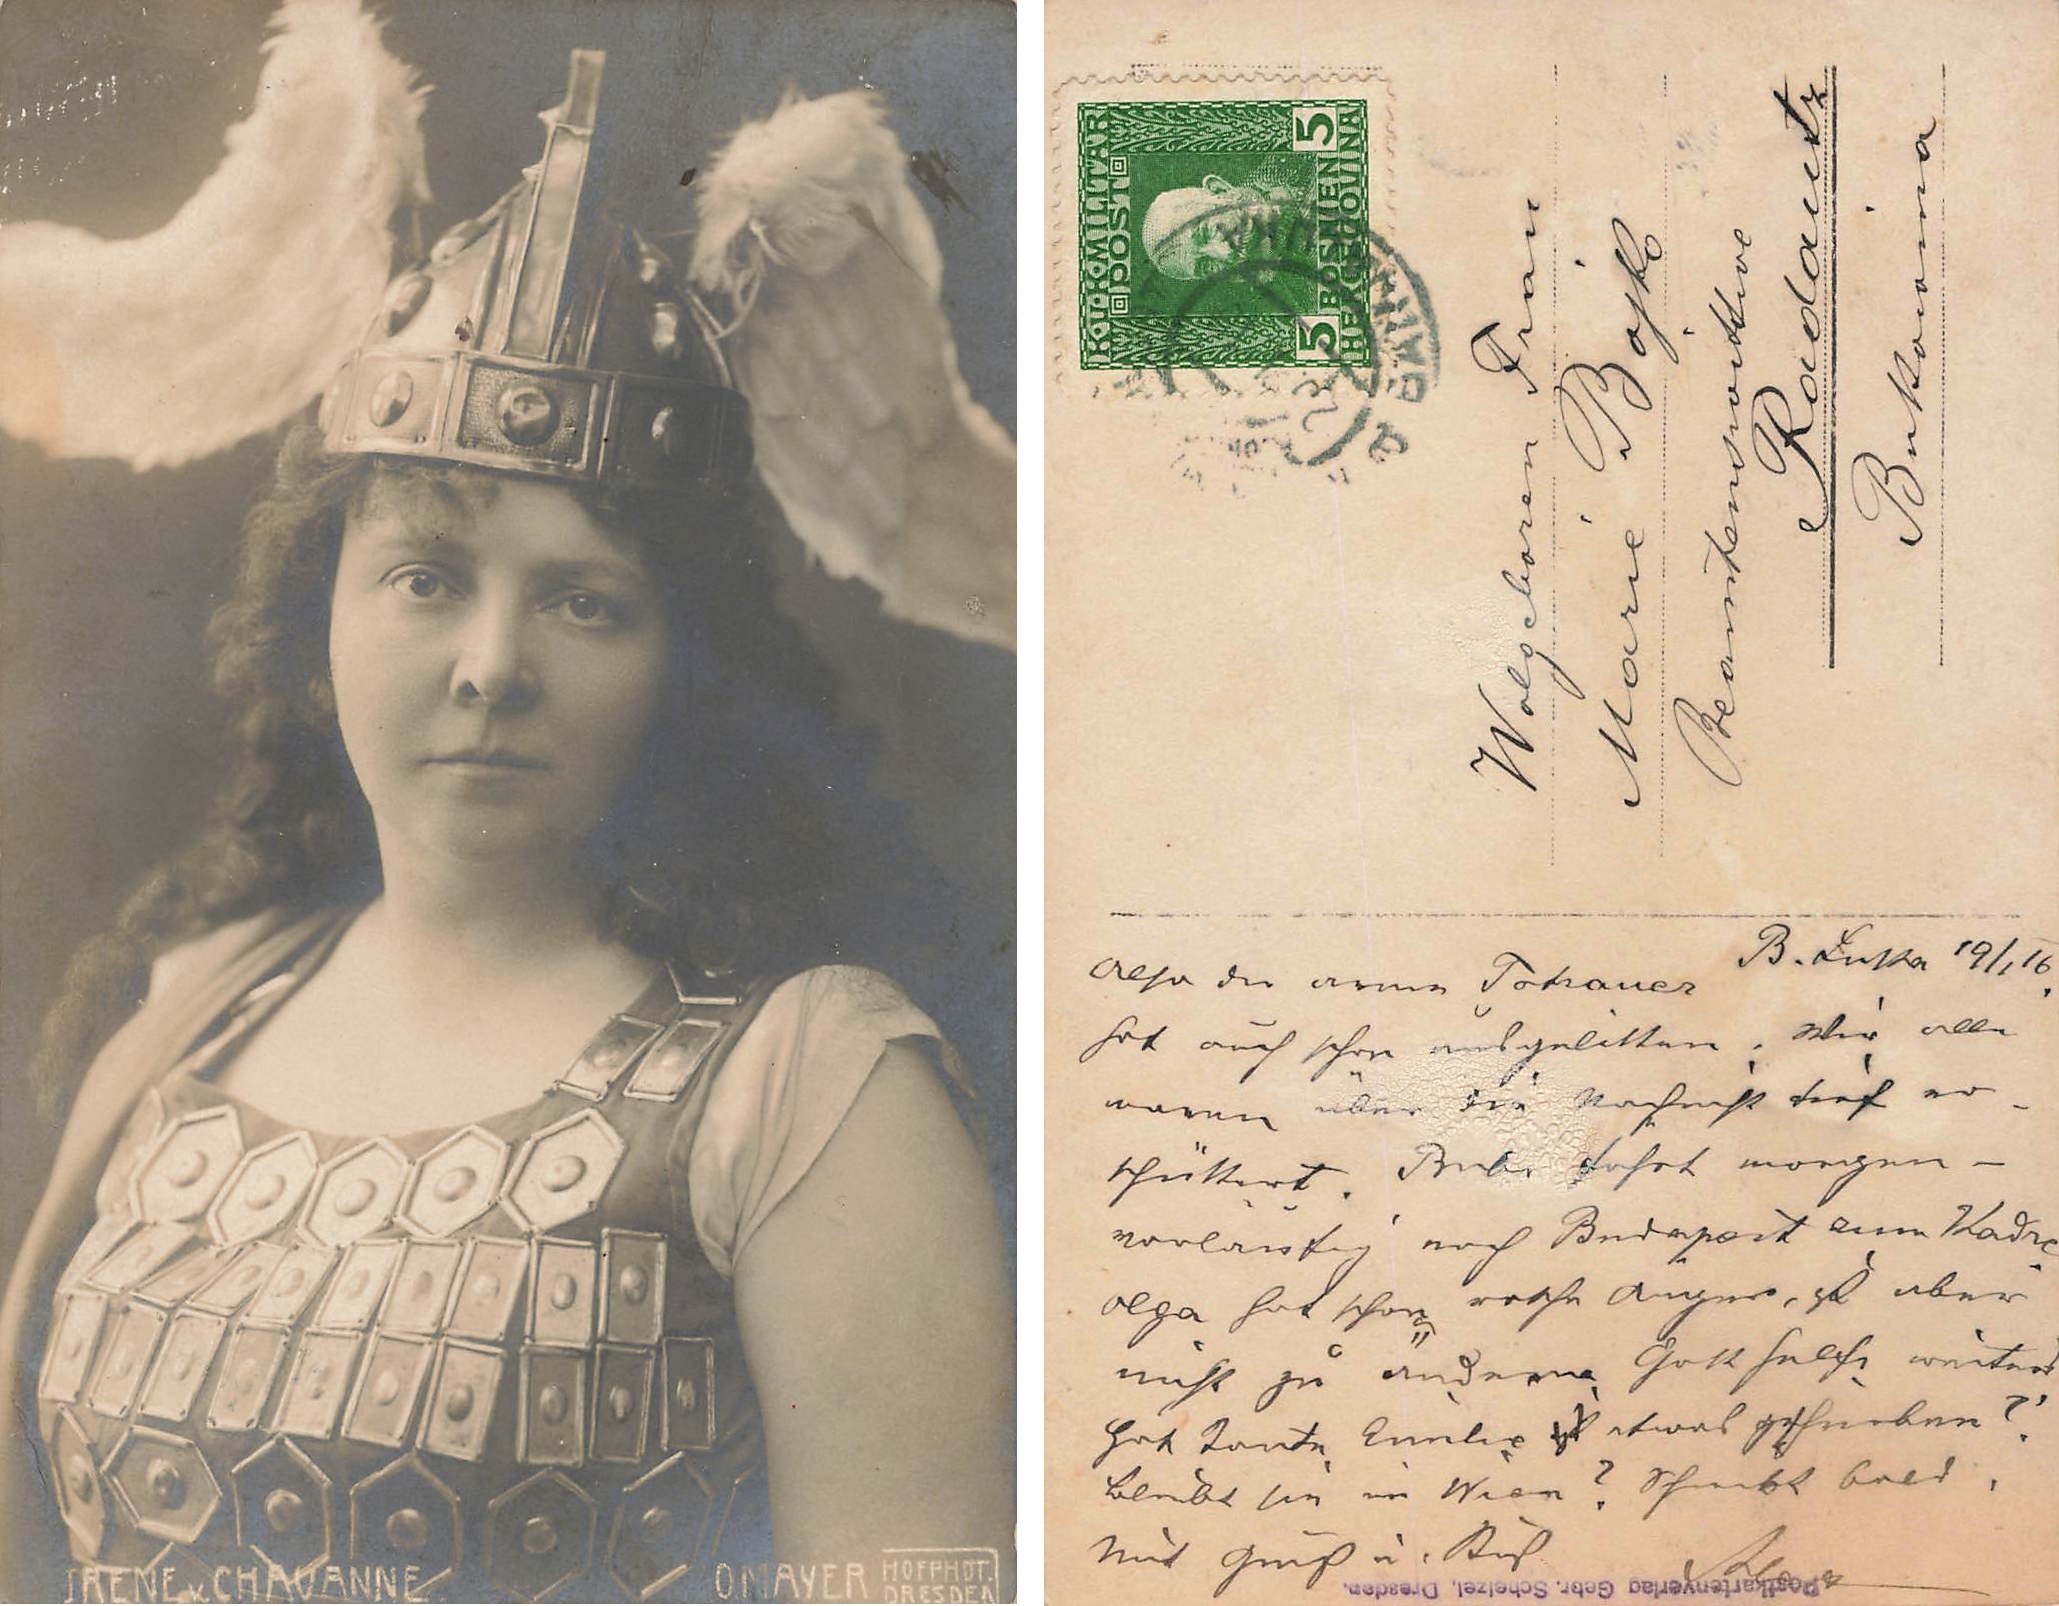 IRENE v. CHAVANNE
O. MAYER HOFPHOT. DRESDEN
K.U.K. MILITÄR
POST
BOSNIEN
HERCEGOVINA
5 5
Wolgeboren Frau
Marie Bojko
Beamtenswittwe
Radautz
Bukowina
B. Luka 19/1 16.
Also der arme Tokauer
hat auch schon ausgelitten. Wir alle
waren über die Nachricht tief er-
schüttert. Bubi fährt morgen –
vorläufig nach Budapest zum Kadre
Olga hat schon rothe Augen, ist aber
nicht zu ändern. Gott helfe weiter
Hat Tante Emilie etwas geschrieben?
bleibt sie in Wien? Schreibt bald.
Mit Gruß u. Kuß
Postkartenverlag Gebr. Schelzel, Dresden.